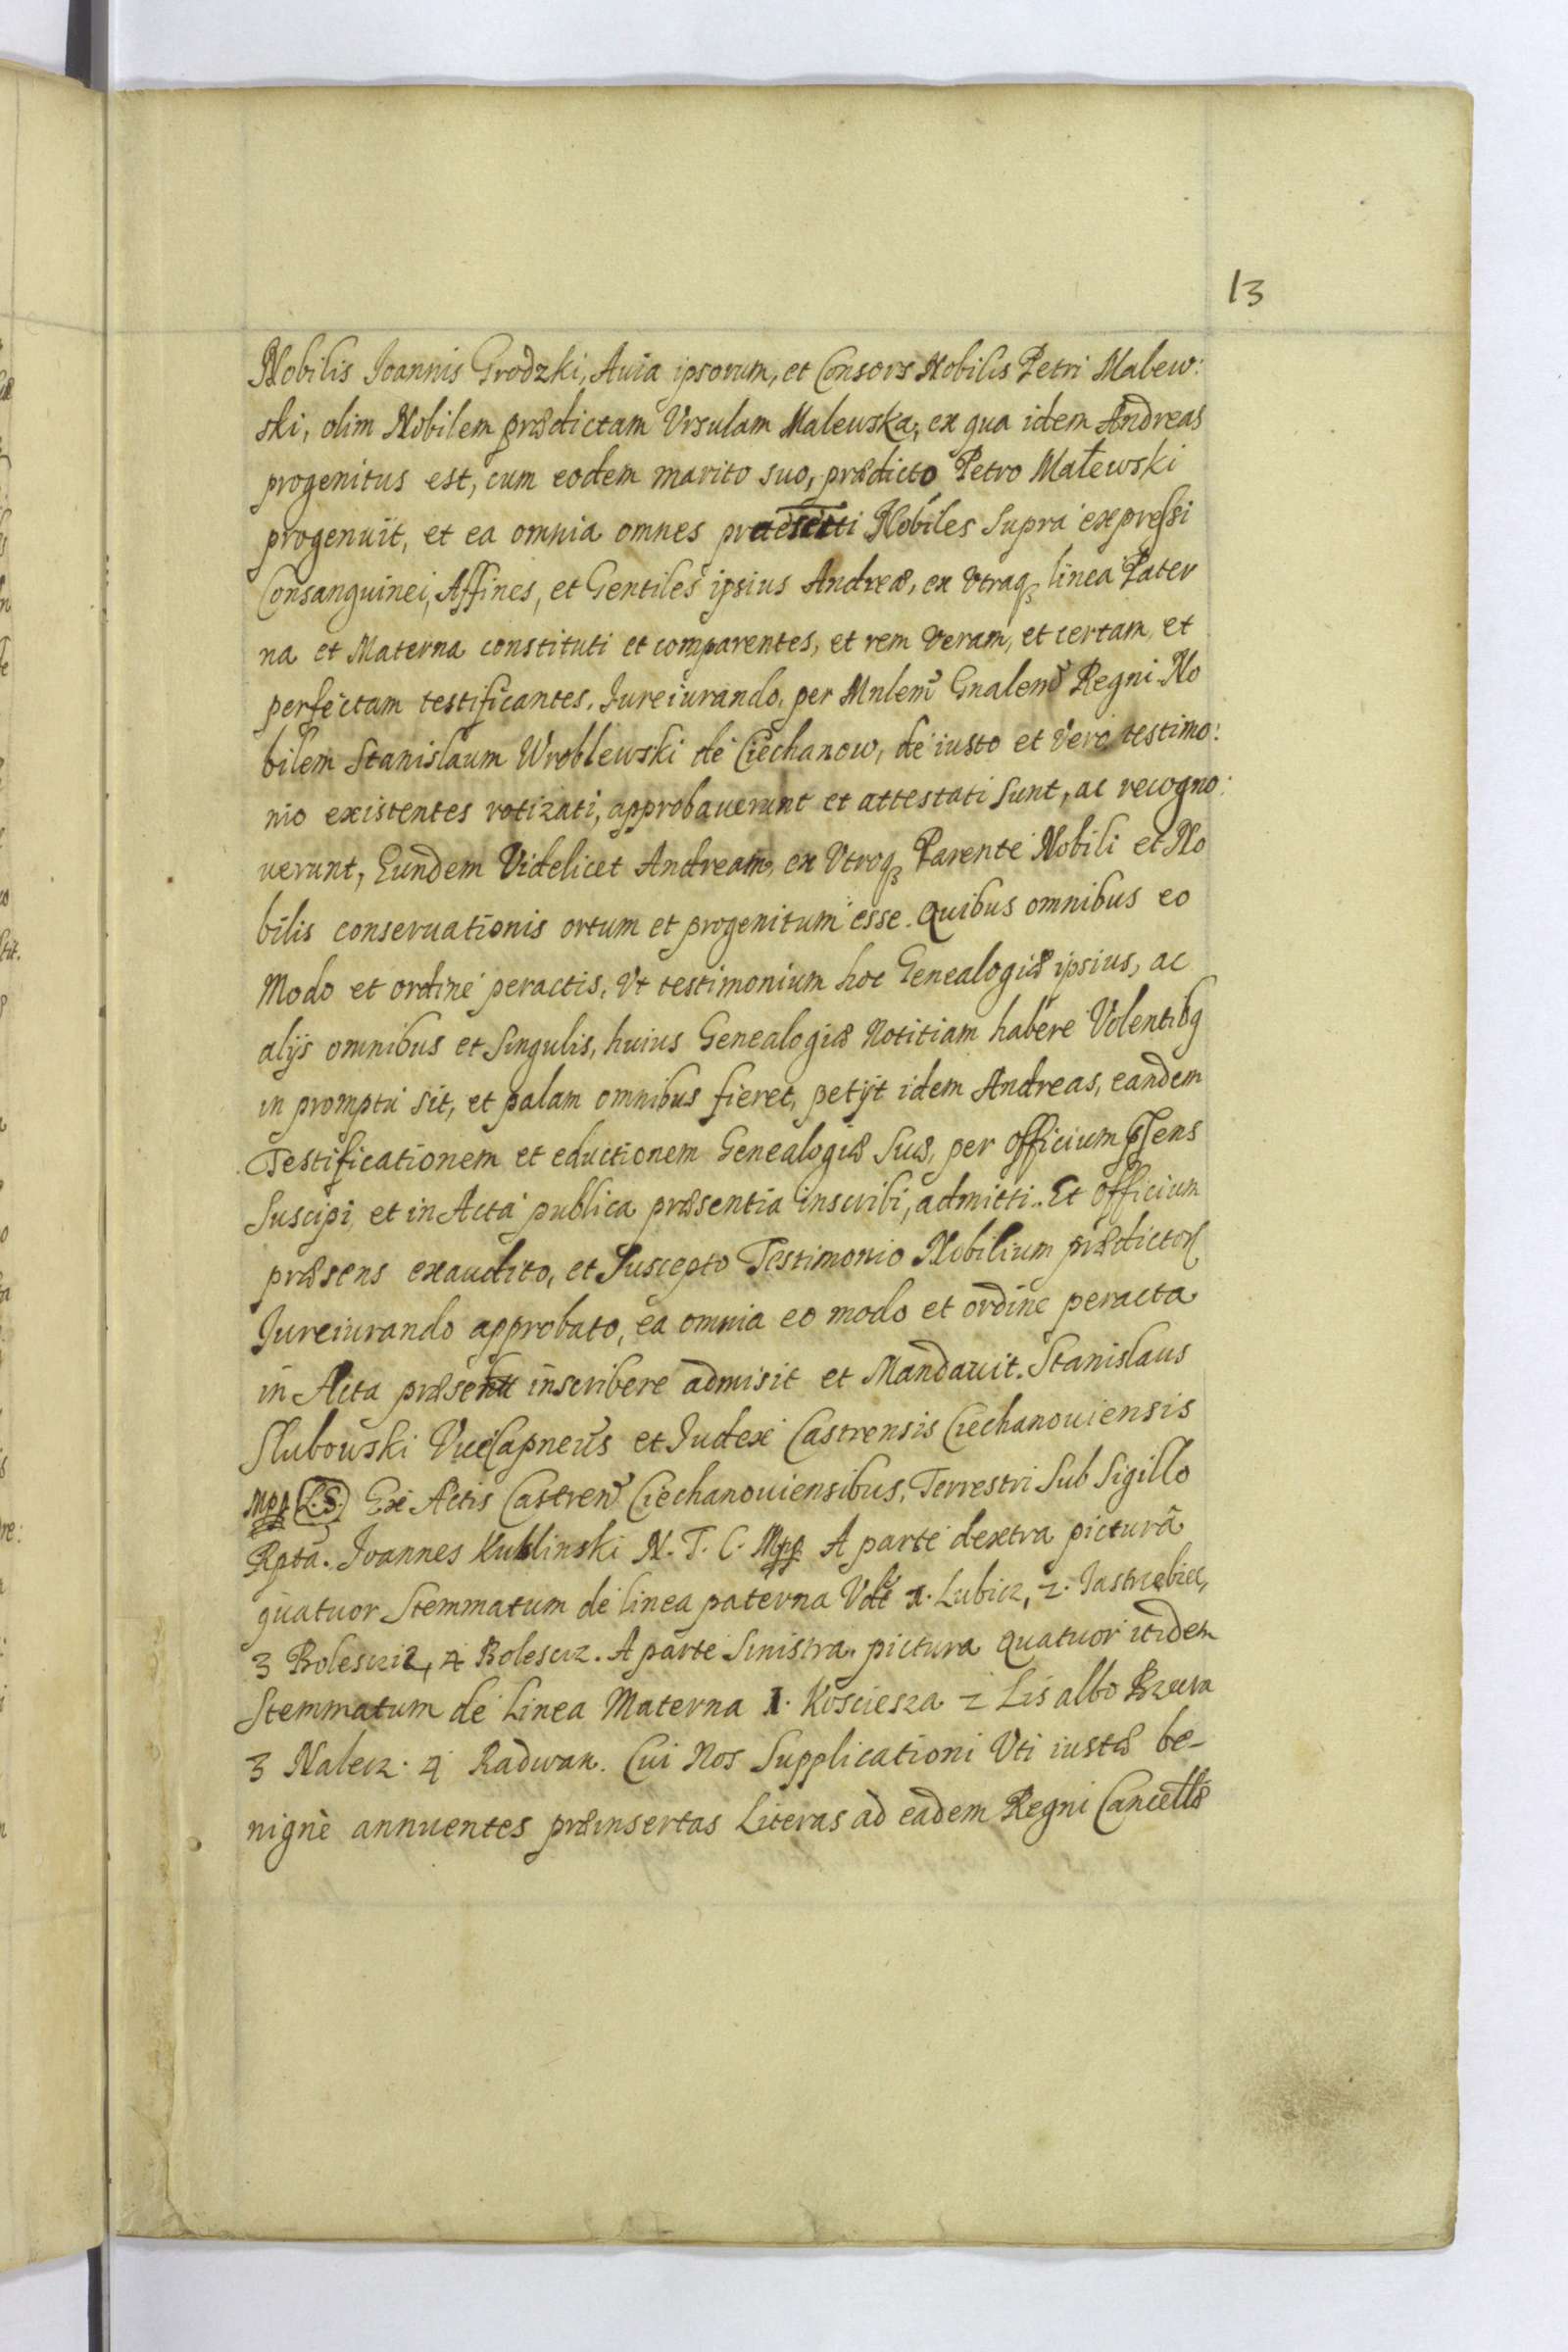 13
Nobilis Joannis Grodzki, Auia ipsorum, et Consors Nobilis Petri Malew:
ski, olim Nobilem prædictam Vrsulam Malewska, ex qua idem Andreas
progenitus est, cum eodem marito suo, prædicto Petro Malewski
progenuit, et ea omnia omnes Nobiles supra expressi
Consanguinei, Affines, et Gentiles ipsius Andreæ, ex vtraqꝫ linea Pater
na et Materna constituti et comparentes, et rem veram, et certam, et
perfectam testificantes, Jureiurando, per Mnlem Gnalem Regni No
bilem Stanislaum Wroblewski de Ciechanow, de iusto et vero testimo:
nio existentes rotizati, approbauerunt et attestati sunt, ac recogno:
uerunt, Eundem Videlicet Andream, ex Vtroqꝫ Parente Nobili et No
bilis conseruationis ortum et progenitum esse. Quibus omnibus eo
Modo et ordine peractis, Vt testimonium hoc Genealogiæ ipsius, ac
alijs omnibus et singulis, huius Genealogiæ Notitiam habere Volentibꝯ
in promptu sit, et palam omnibus fieret, petijt idem Andreas, eandem
Testificationem et eductionem Genealogiæ suæ, per officium pſens
Suscipi, et in Acta publica præsentia inscribi, admitti. Et officium
præsens exaudito, et Suscepto Testimonio Nobilium prædictoꝝ
Jureiurando approbato, ea omnia eo modo et ordine peracta
in Acta inscribere admisit et Mandauit. Stanislaus
Slubowski ViceCapneus et Judex Castrensis Ciechanouiensis
Mpp (L.S.) Ex Actis Castren Ciechanouiensibus, Terrestri Sub Sigillo
Rpta. Joannes Kuklinski N. T. C. Mpp A parte dextra pictura
quatuor Stemmatum de linea paterna Vdt 1. Lubicz, 2. Jastrzebiec,
3 Bolescicz, 4 Bolescicz. A parte Sinistra pictura quatuor itidem
Stemmatum de Linea Materna 1. Kosciesza 2 Lis albo Bzura
3 Nalecz. 4 Radwan. Cui Nos Supplicationi Vti iustæ be-
nignè annuentes præinsertas Literas ad eadem Regni Cancellæ